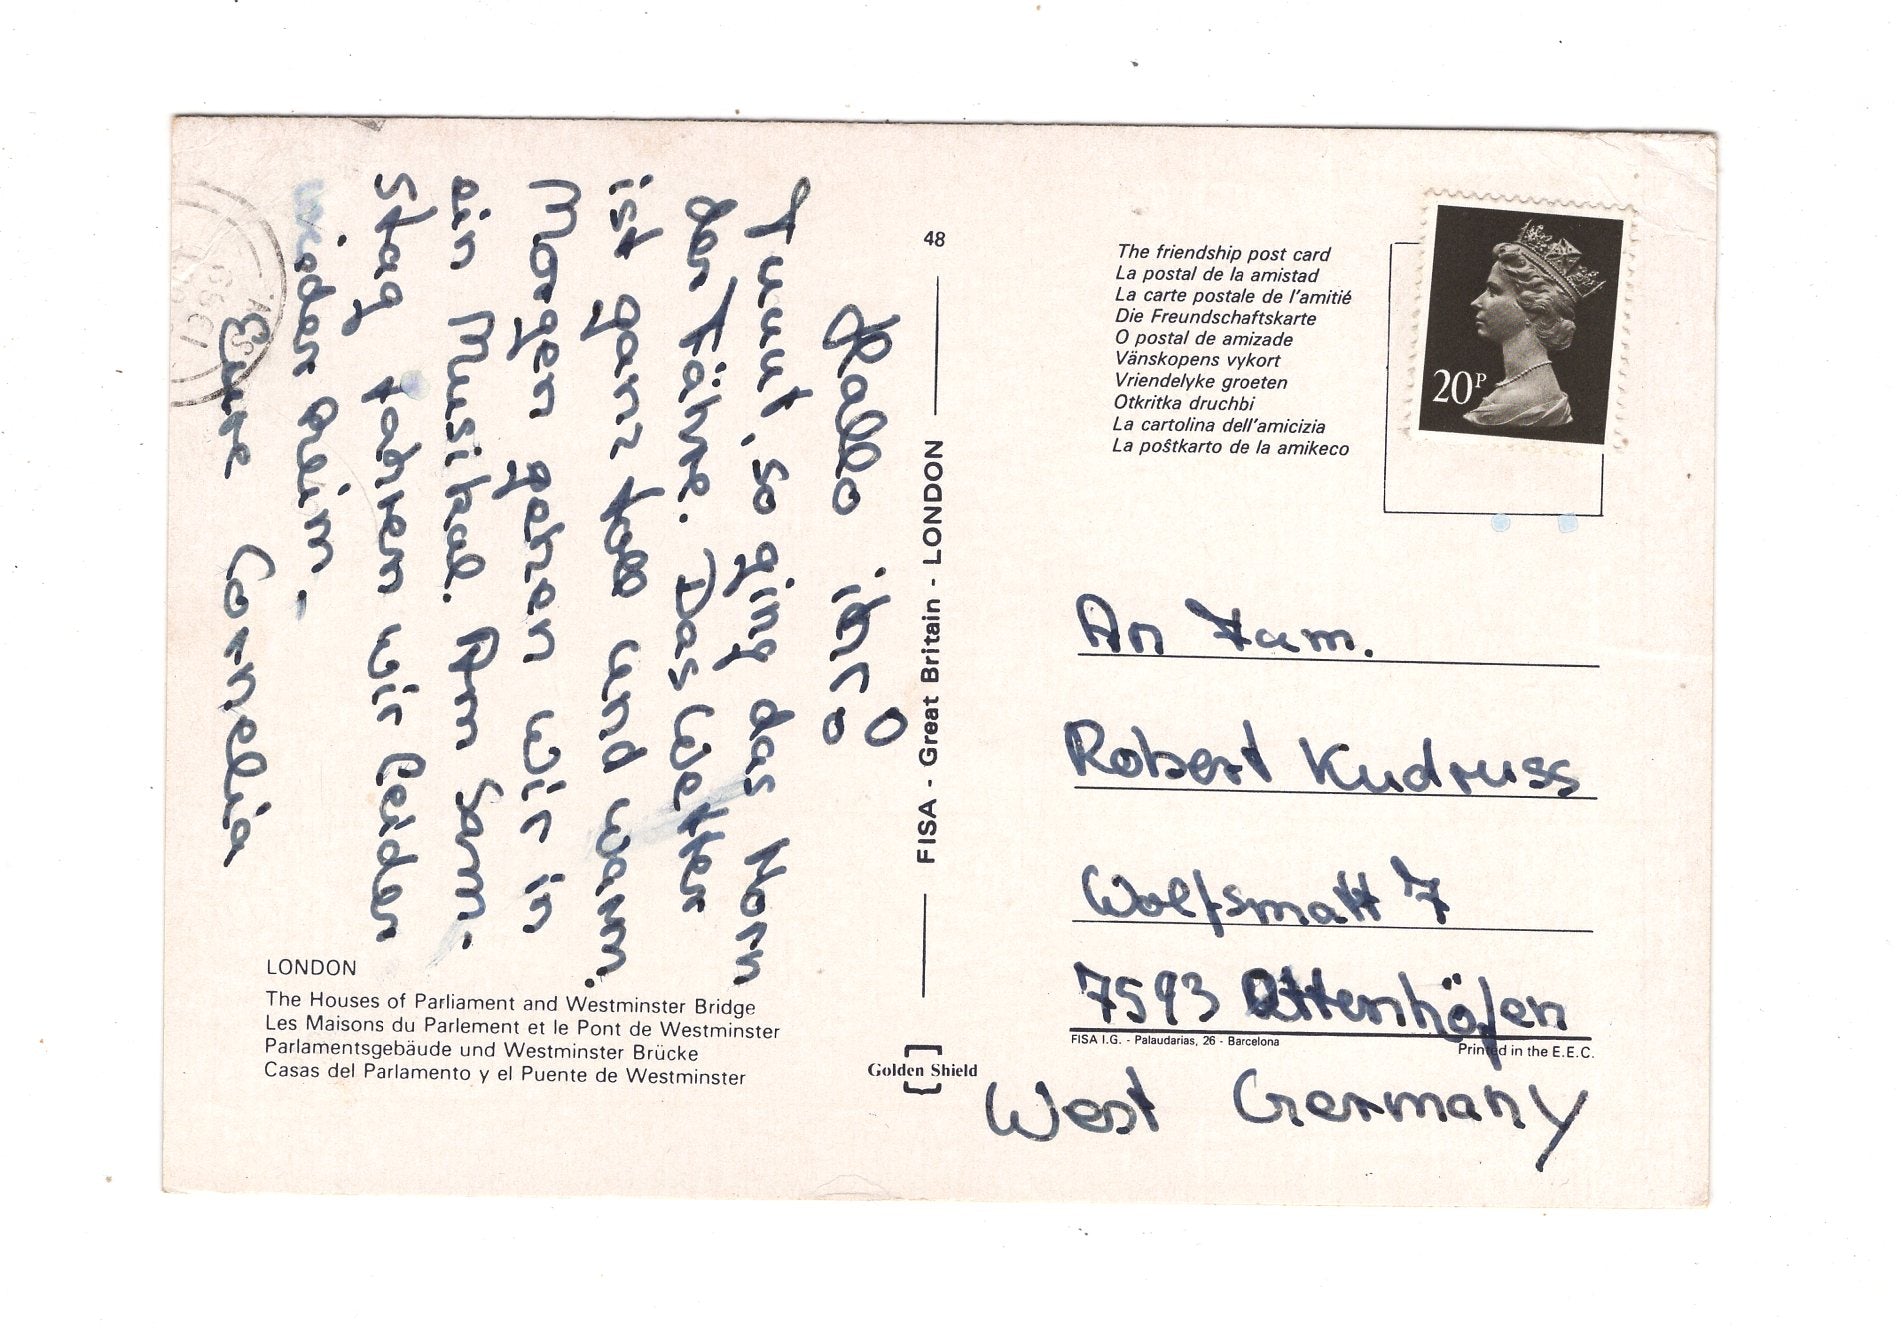 Hallo ihr
Tuuut, so ging das Horn
der Fähre. Das Wetter
ist ganz toll und warm.
Morgen gehen wir in
ein Musikal. Am Sam-
stag fahren wir leider
wieder heim.-
Eure Cornelia
LONDON
The Houses of Parliament and Westminster Bridge
Les Maisons du Parlement et le Pont de Westminster
Parlamentsgebäude und Westminster Brücke
Casas del Parlamento y el Puente de Westminster
48
FISA - Great Britain - LONDON
Golden Shield
The friendship post card
La postal de la amistad
La carte postale de l'amitié
Die Freundschaftskarte
O postal de amizade
Vänskopens vykort
Vriendelyke groeten
Otkritka druchbi
La cartolina dell'amicizia
La poŝtkarto de la amikeco
20P
An Fam.
Robert Kudruss
Wolfsmatt 7
7593 Ottenhöfen
FISA I.G. - Palaudarias, 26 - Barcelona
Printed in the E.E.C.
West Germany